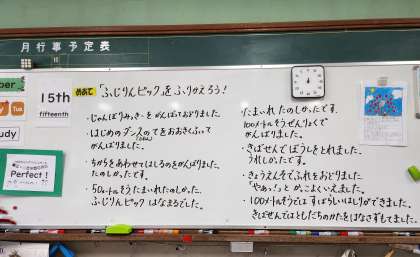 月行事予定表
per
Tue
udy
15th
fifteenth
Perfect!
めあて 「ふじりんピック」を ふりかえろう!
・じゅんばんみっきーをがんばっておどりました。
・はじめのダンスのてをおおきくふって
がんばりました。
・ちからをあわせてはしるのをがんばりました。
たのしかったです。
・50メートルそうたまいれたのしかった。
ふじりんピックはなまるでした。
・たまいれたのしかったです。
100メートルそうぜんりょくで
がんばりました。
・きばせんでぼうしをとれました。
うれしかったです。
・きょうえんぞでふれをおどりました
「やあっ!」とが、こよくいえました。
・100メートルそうではすばらしいはしりができました。
きばせんではともだちのかたをはなさずもてました。